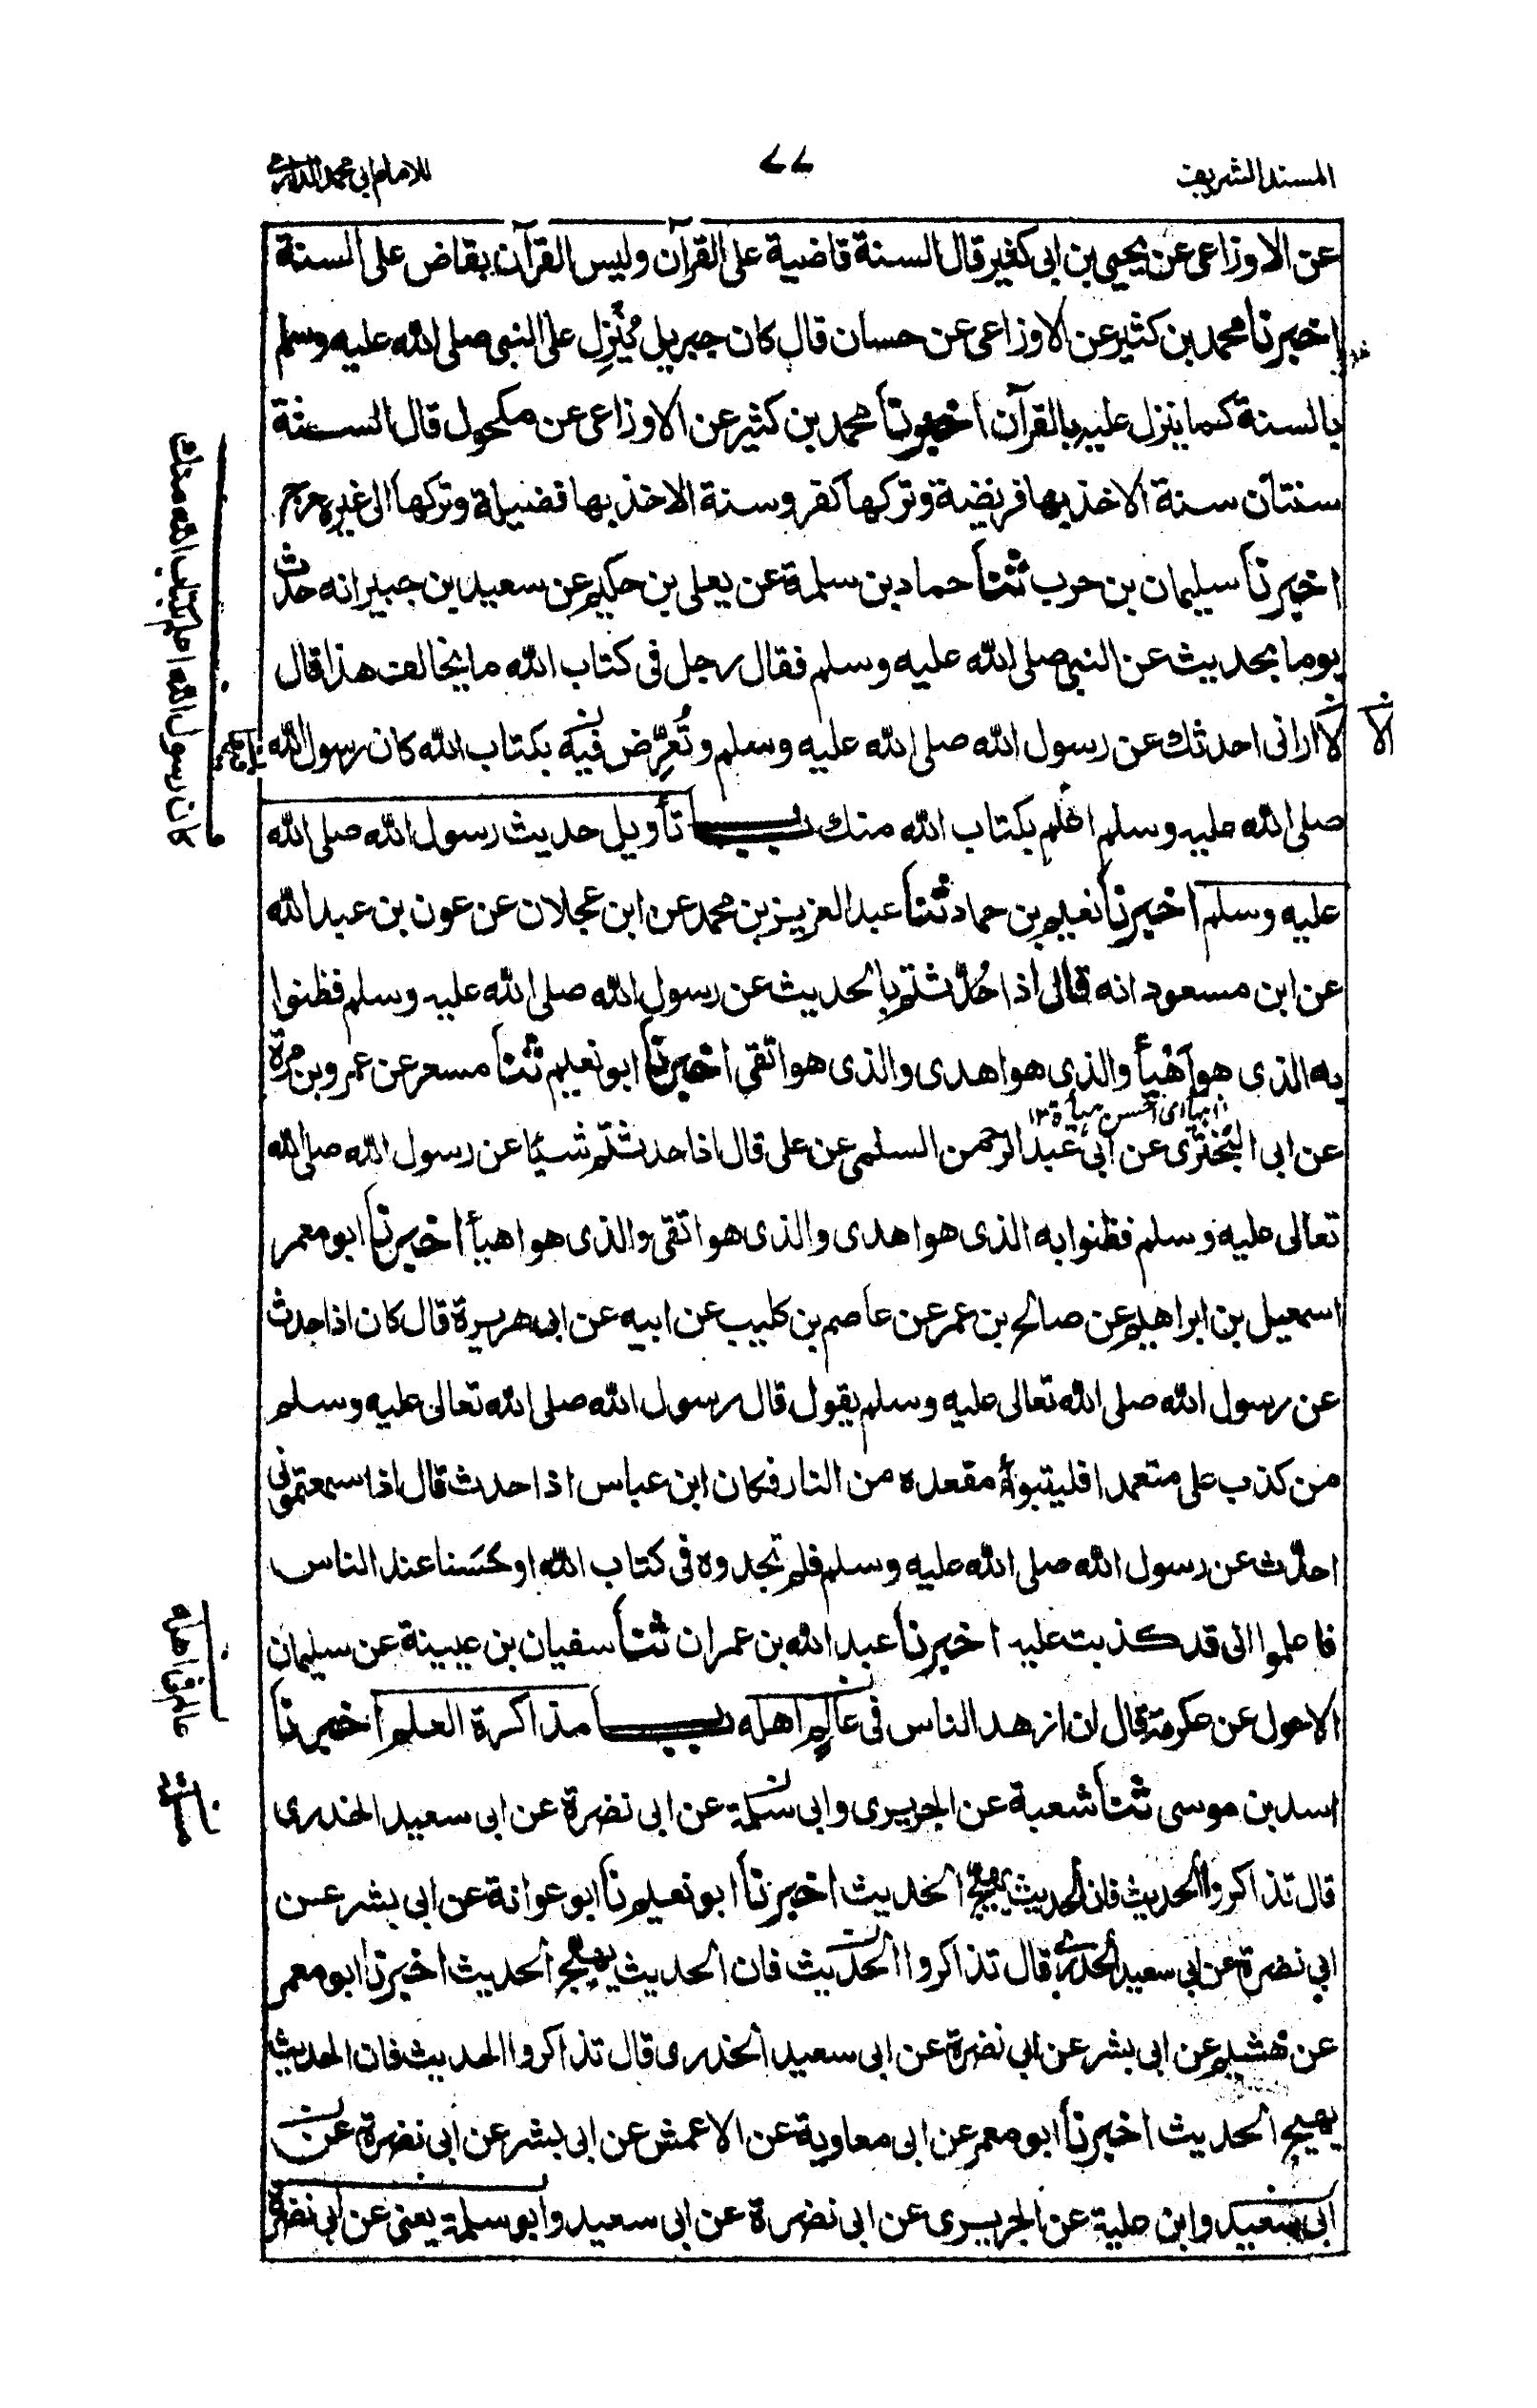 المسند الشريف
٧٧
للامام ابی محمد الدارمی
عن الاوزاعی عن یحیی بن ابی کثیر قال السنة قاضیة علی القرآن ولیس القرآن بقاض علی السنة
اخبرنا محمد بن کثیر عن الاوزاعی عن حسان قال کان جبریل یُنْزِل علی النبی صلی الله علیه وسلم
بالسنة کما ینزل علیه بالقرآن اخبرنا محمد بن کثیر عن الاوزاعی عن مکحول قال السنة
سنتان سنة الاخذ بها فریضة وترکها کفر وسنة الاخذ بها فضیلة وترکها الی غیره حرج
اخبرنا سلیمان بن حرب ثنا حماد بن سلمة عن یعلی بن حکیم عن سعید بن جبیر انه حدث
یوما بحدیث عن النبی صلی الله علیه وسلم فقال رجل فی کتاب الله ما یخالف هذا قال
لا ارانی احدثك عن رسول الله صلی الله علیه وسلم وتُعَرِّض فیه بکتاب الله کان رسول الله
صلی الله علیه وسلم اعلم بکتاب الله منك باب تأویل حدیث رسول الله صلی الله
علیه وسلم اخبرنا نعیم بن حماد ثنا عبد العزیز بن محمد عن ابن عجلان عن عون بن عبد الله
عن ابن مسعود انه قال اذا حُدّثتم بالحدیث عن رسول الله صلی الله علیه وسلم فظنوا
به الذی هو اَهْیَأ والذی هو اهدی والذی هو اتقی اخبرنا ابو نعیم ثنا مسعر عن عمرو بن مرة
عن ابی البختری عن ابی عبد الرحمن السلمی عن علی قال اذا حدثتم شیئا عن رسول الله صلی الله
تعالی علیه وسلم فظنوا به الذی هو اهدی والذی هو اتقی والذی هو اهیأ اخبرنا ابو معمر
اسمعیل بن ابراهیم عن صالح بن عمر عن عاصم بن کلیب عن ابیه عن ابی هریرة قال کان اذا حدث
عن رسول الله صلی الله تعالی علیه وسلم یقول قال رسول الله صلی الله تعالی علیه وسلم
من کذب علی متعمدا فلیتبوأ مقعده من النار فکان ابن عباس اذا حدث قال اذا سمعتمونی
احدّث عن رسول الله صلی الله علیه وسلم فلم تجدوه فی کتاب الله او حَسَنا عند الناس
فاعلموا انی قد کذبت علیه اخبرنا عبد الله بن عمران ثنا سفیان بن عیینة عن سلیمان
الاحول عن عکرمة قال ان ازهد الناس فی عالِمٍ اهله باب مذاکرة العلم اخبرنا
اسد بن موسی ثنا شعبة عن الجریری وابی سلمة عن ابی نضرة عن ابی سعید الخدری
قال تذاکروا الحدیث فان الحدیث یهیج الحدیث اخبرنا ابو نعیم نا ابو عوانة عن ابی بشر عن
ابی نضرة عن ابی سعید الخدری قال تذاکروا الحدیث فان الحدیث یهیج الحدیث اخبرنا ابو معمر
عن هشیم عن ابی بشر عن ابی نضرة عن ابی سعید الخدری قال تذاکروا الحدیث فان الحدیث
یهیج الحدیث اخبرنا ابو معمر عن ابی معاویة عن الاعمش عن ابی بشر عن ابی نضرة عن
ابی سعید وابن علیة عن الجریری عن ابی نضرة عن ابی سعید وابو سلمة یعنی عن ابی نضرة
لا
کان رسول الله اعلم بکتاب الله منك
عالم فی اهله